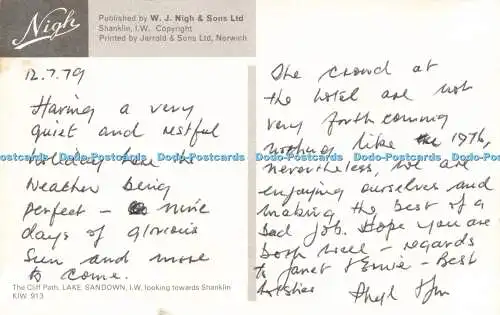 Nigh
Published by W. J. Nigh & Sons Ltd
Shanklin, I.W. Copyright
Printed by Jarrold & Sons Ltd, Norwich
12.7.79
Having a very
quiet and restful
holiday here the
Weather being
perfect - nine
days of glorious
Sun and more
to come.
The Cliff Path, LAKE, SANDOWN, I.W. looking towards Shanklin
KIW 913
The crowd at
the hotel are not
very forthcoming
nothing like 1976,
nevertheless, we are
enjoying ourselves and
making the best of a
bad job. Hope you are
both well - regards
to Janet & Ernie - Best
Wishes
Dodo-Postcards Dodo-Postcards Dodo-Postcards Dodo-Postcards Dodo-Postcards Dodo-Postcards
Dodo-Postcards Dodo-Postcards Dodo-Postcards Dodo-Postcards Dodo-Postcards Dodo-Postcards